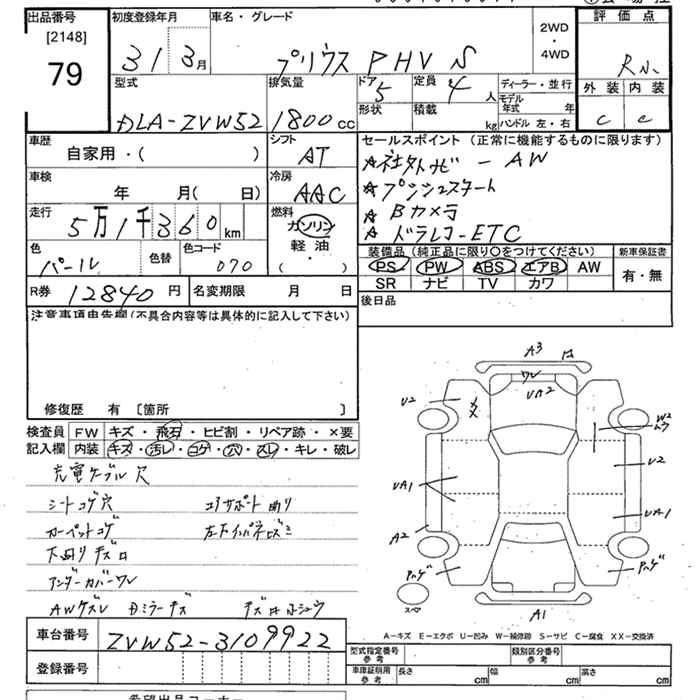 出品番号
[2148]
79
初度登録年月
31 3月
車名・グレード
プリウス PHV S
2WD
・
4WD
評価点
R
外装 内装
C C
型式
DLA-ZVW52
排気量
1800cc
ドア
5
定員
4人
形状
積載
kg
ディーラー・並行
モデル年式 年
ハンドル 左・右
車歴
自家用・( )
シフト
AT
車検
年 月( 日)
冷房
AAC
走行
5万1千360km
燃料
ガソリン
軽油
( ・ )
色
パール
色替
色コード
070
R券 12840円
名変期限 月 日
セールスポイント(正常に機能するものに限ります)
★社外ナビ ー AW
★プッシュスタート
★Bカメラ
★ドラレコーETC
装備品(純正品に限り○をつけてください)
PS PW ABS エアB AW
SR ナビ TV カワ
新車保証書
有・無
後日品
注意事項申告欄(不具合内容等は具体的に記入して下さい)
修復歴 有 〔箇所 〕
検査員記入欄
FW キズ・飛石・ヒビ割・リペア跡・×要
内装 キズ・汚レ・コゲ・穴・スレ・キレ・破レ
充電ケーブル穴
シートコゲ穴 コアサポート曲り
カーペットコゲ
下廻りキズ
アンダーカバーワレ
AWキズ Dミラーキズ
車台番号 ZVW52-3109922
登録番号
A3
ワレ
UA2
U2
W2
U2
UA1
UA1
A2
ハゲ
ハゲ
スペア
A1
A−キズ E−エクボ U−凹み W−補修跡 S−サビ C−腐食 XX−交換済
型式指定番号
参考
類別区分番号
参考
車庫証明用
参考
長さ cm 幅 cm 高さ cm
希望出品コーナー